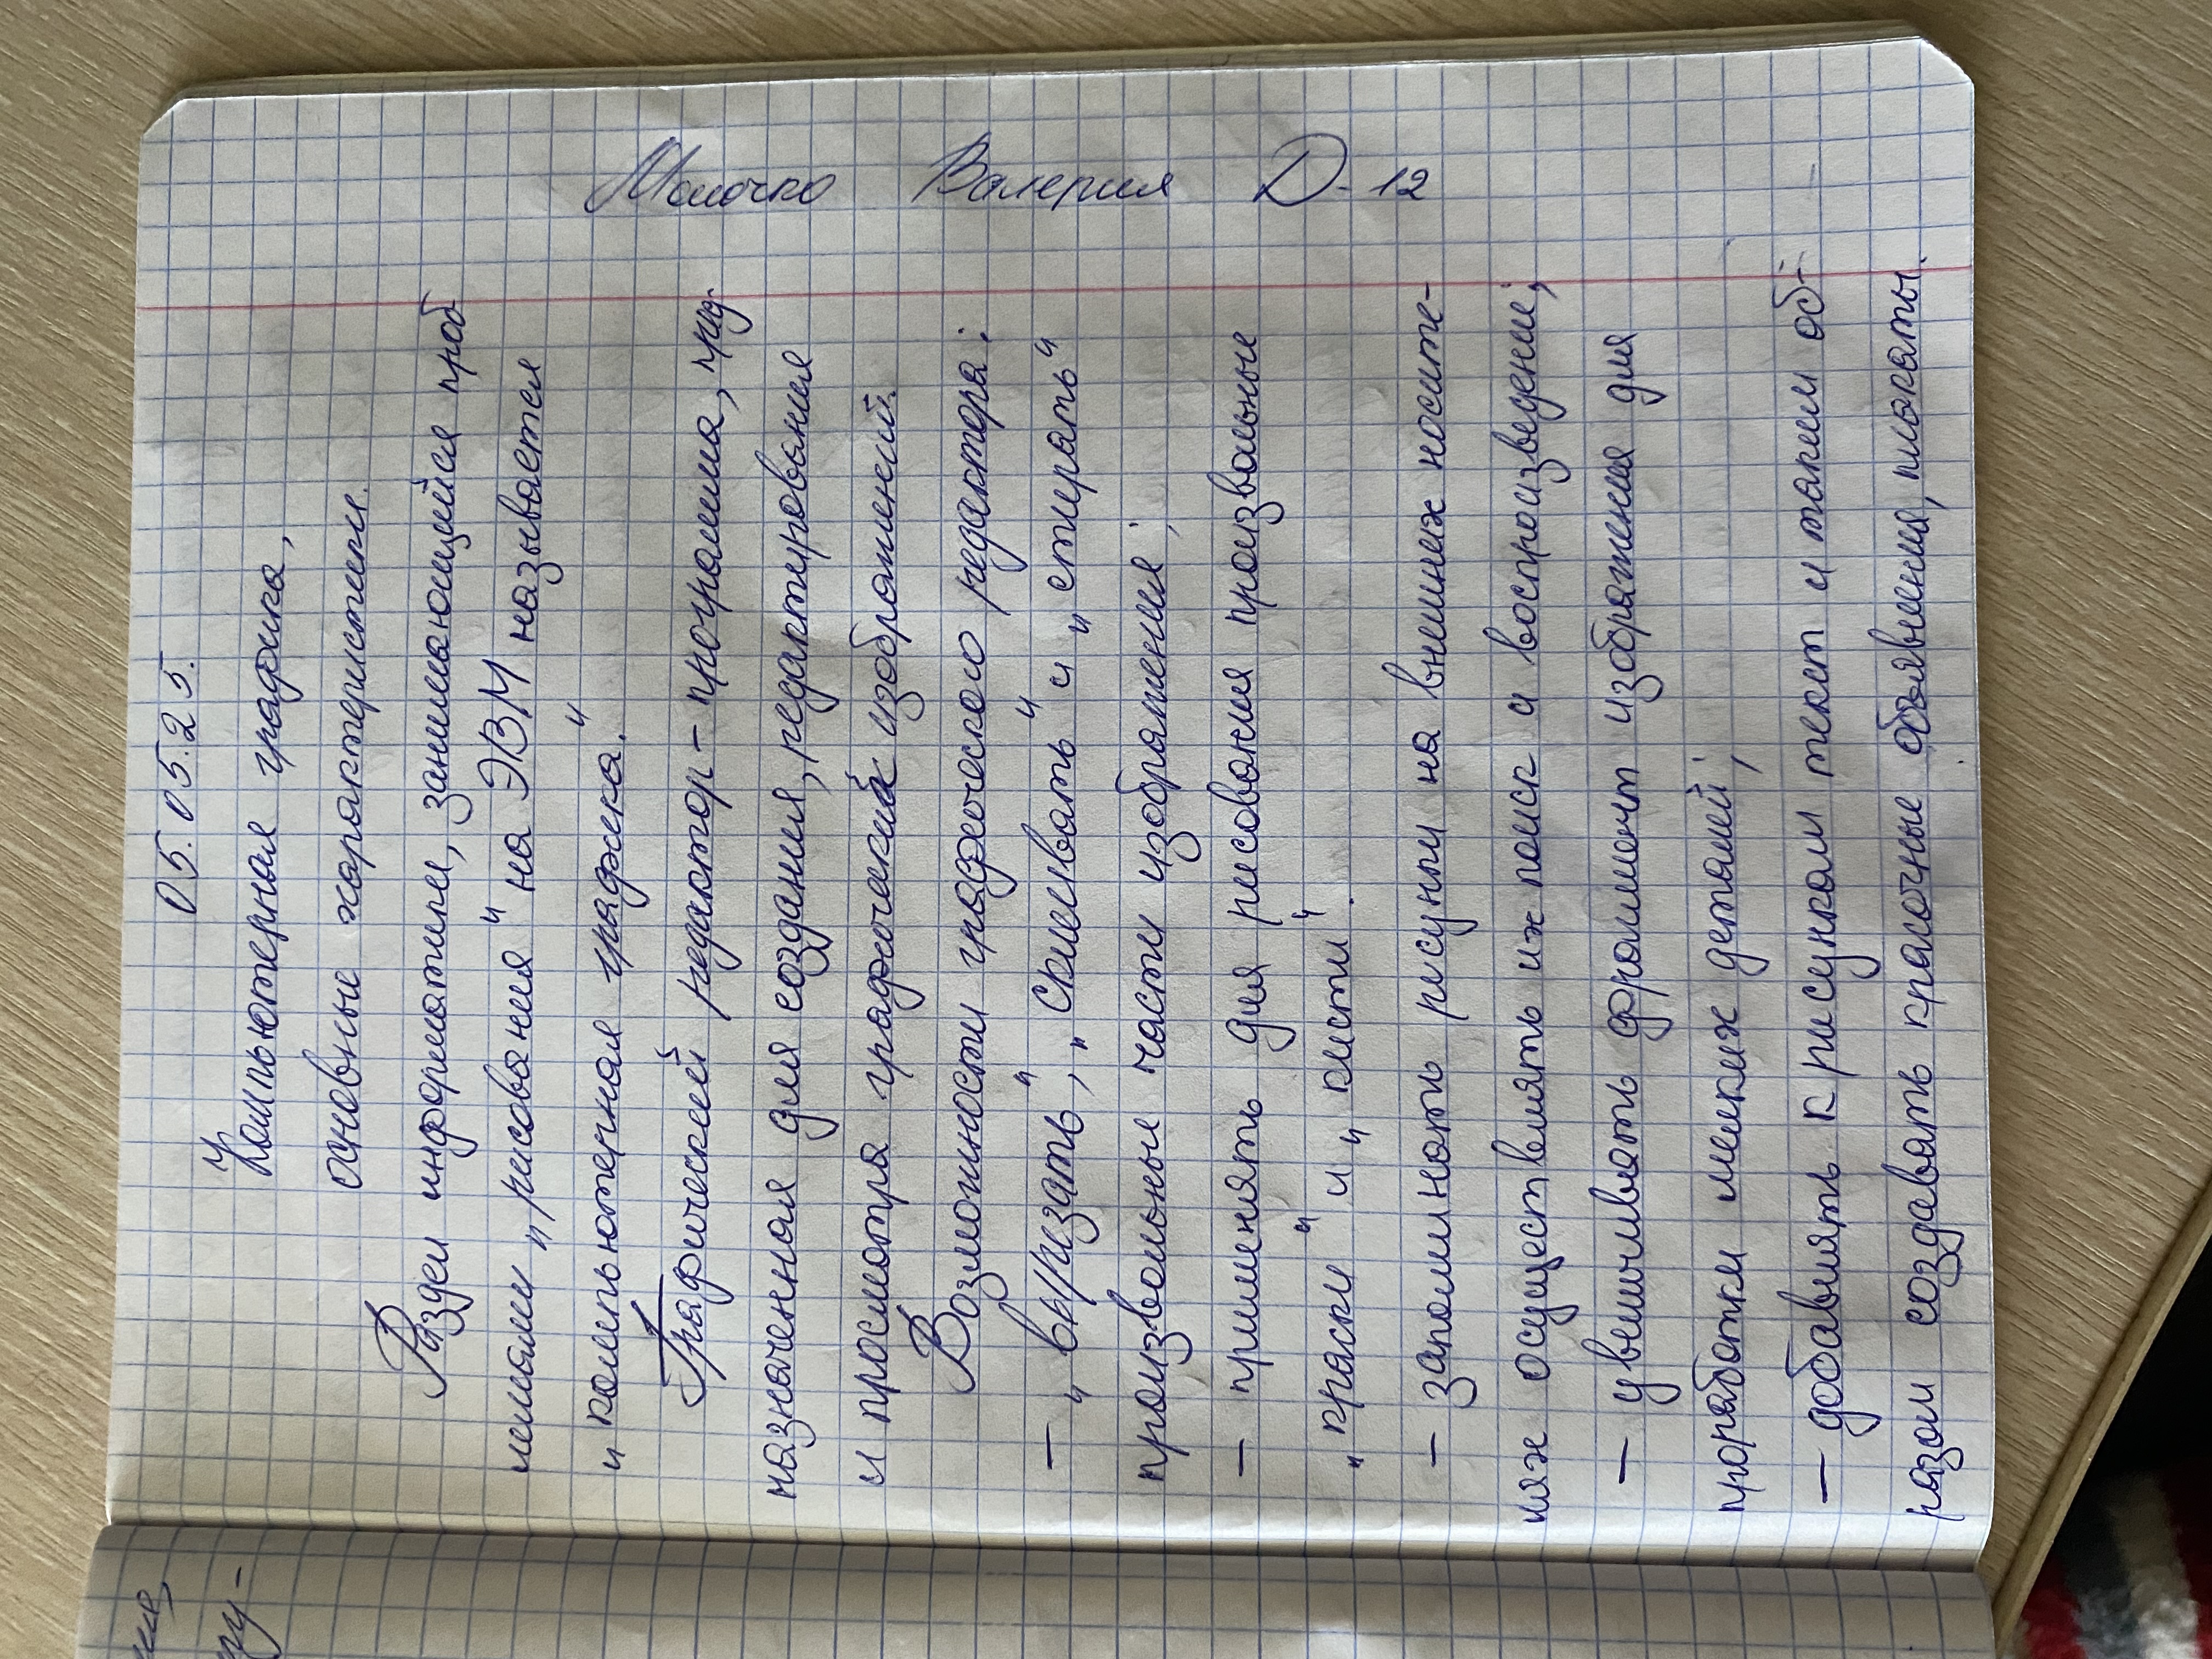 05.05.25.
Компьютерная графика,
основные характеристики.
Раздел информатики, занимающейся проб
лемами „рисования“ на ЭВМ называется
„компьютерная графика“.
Графический редактор – программа, пред-
назначенная для создания, редактирования
и просмотра графический изображений.
Возможности графического редактора:
– „вырезать“, „склеивать“ и „стирать“
произвольные части изображения;
– применять для рисования произвольные
„краски“ и „кисти“.
– запоминать рисунки на внешних носите-
лях осуществлять их поиск и воспроизведение;
– увеличивать фрагмент изображения для
проработки мелких деталей;
– добавлять к рисункам текст и таким об-
разом создавать красочные объявления, плакаты.
Молочко Валерия Д-12